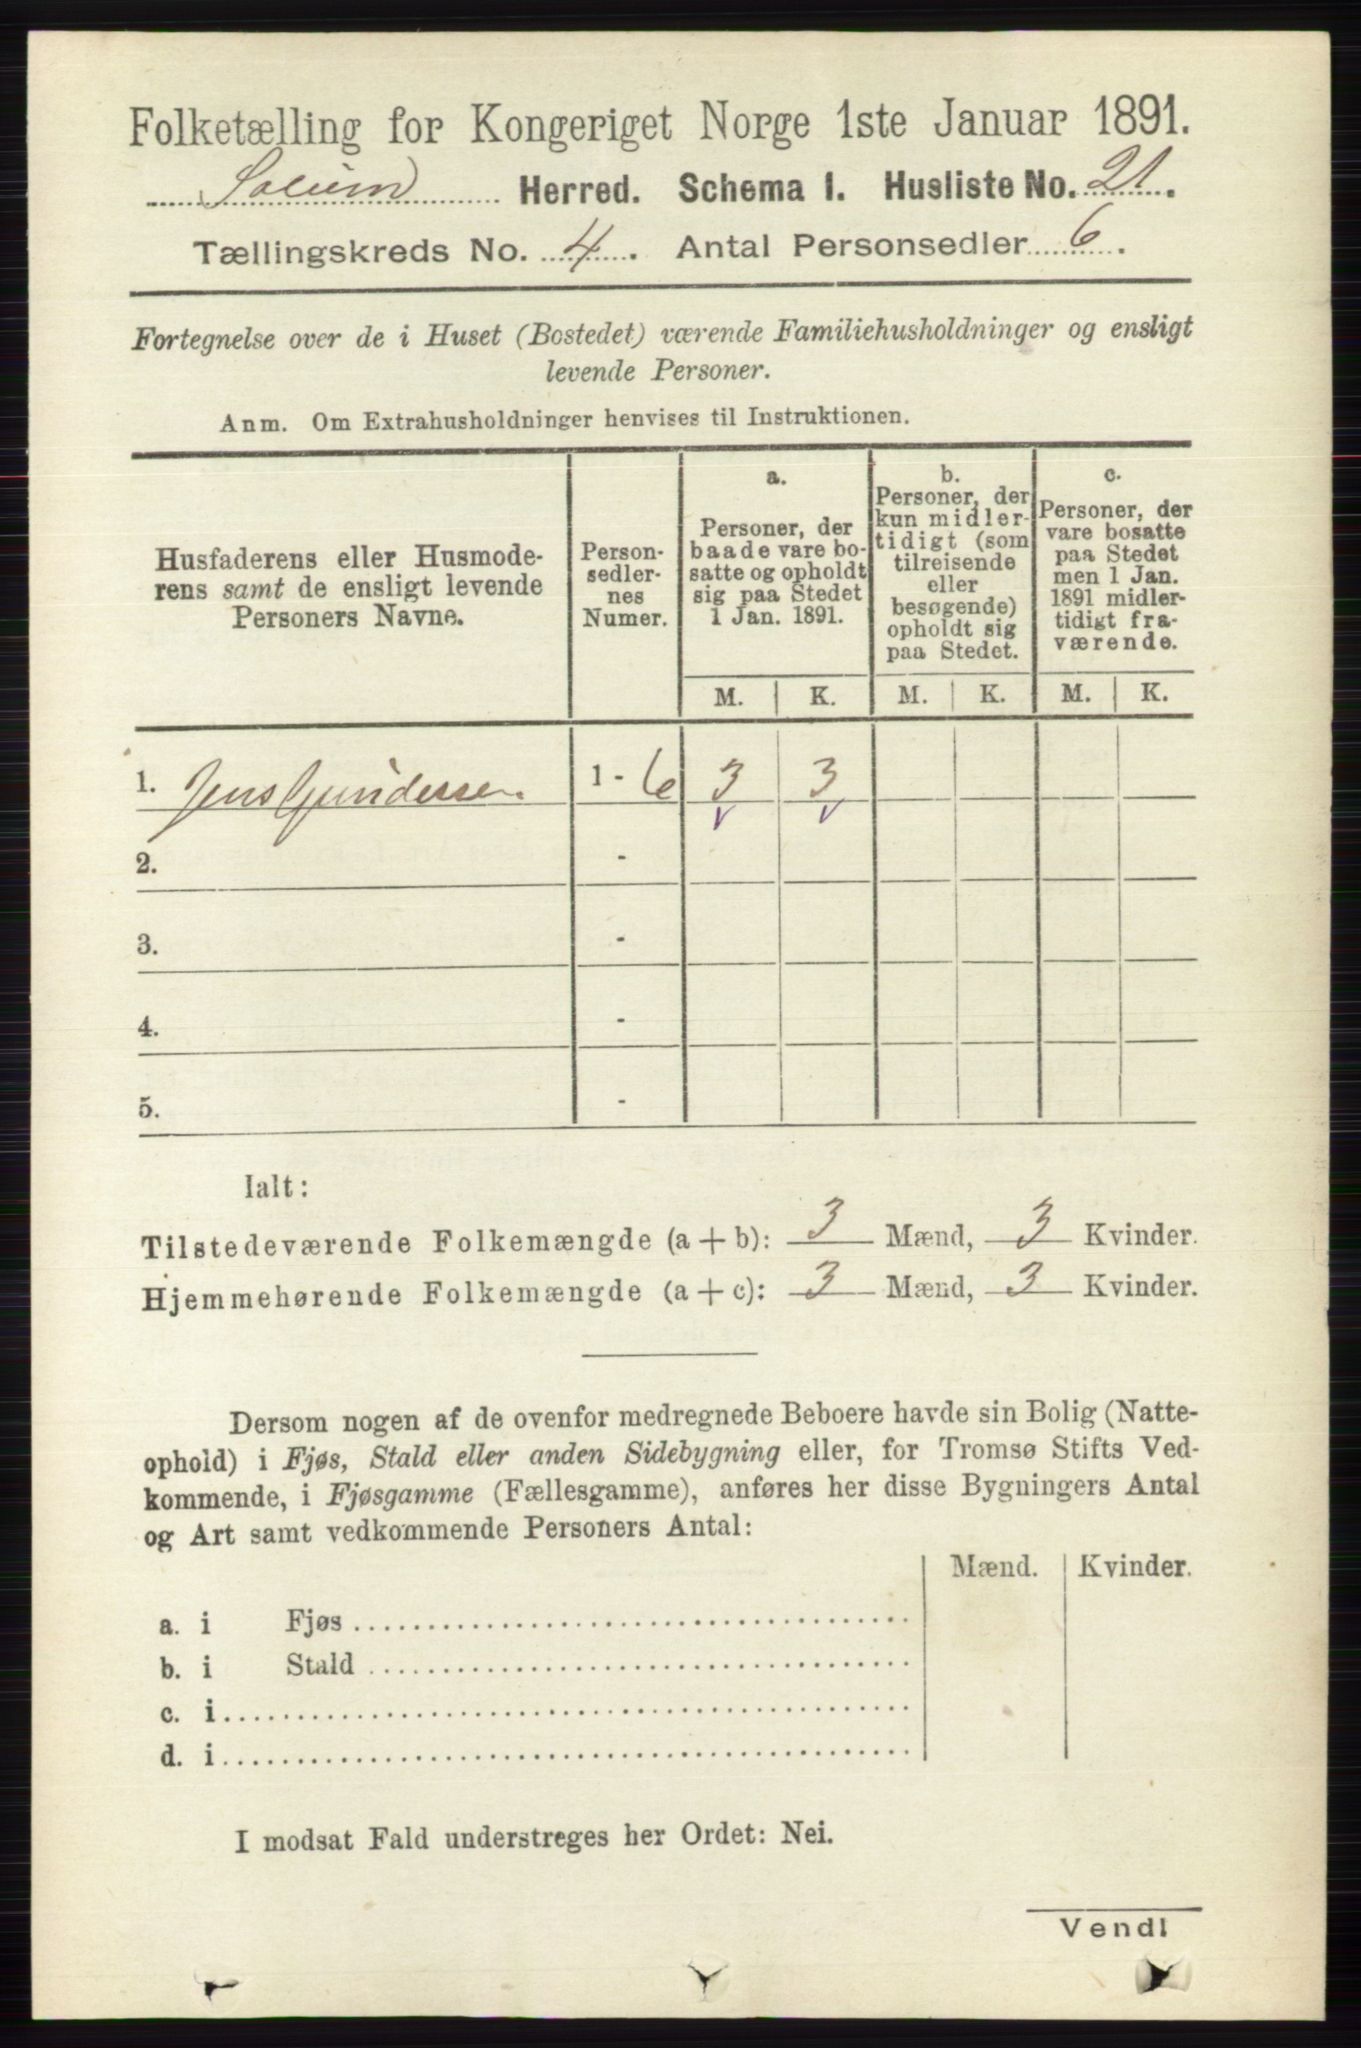 Folketælling for Kongeriget Norge 1ste Januar 1891.
Solum Herred. Schema 1. Husliste No. 21.
Tællingskreds No. 4. Antal Personsedler 6.
Fortegnelse over de i Huset (Bostedet) værende Familiehusholdninger og ensligt
levende Personer.
Anm. Om Extrahusholdninger henvises til Instruktionen.
Husfaderens eller Husmode-
rens samt de ensligt levende
Personers Navne.
Person-
sedler-
nes
Numer.
a.
Personer, der
baade vare bo-
satte og opholdt
sig paa Stedet
1 Jan. 1891.
b.
Personer, der
kun midler-
tidigt (som
tilreisende
eller
besøgende)
opholdt sig
paa Stedet.
c.
Personer, der
vare bosatte
paa Stedet
men 1 Jan.
1891 midler-
tidigt fra-
værende.
M. K. M. K. M. K.
1. Jens Gundersen. 1 - 6 3 3
2. -
3. -
4. -
5. -
Ialt:
Tilstedeværende Folkemængde (a + b): 3 Mænd, 3 Kvinder.
Hjemmehørende Folkemængde (a + c): 3 Mænd, 3 Kvinder.
Dersom nogen af de ovenfor medregnede Beboere havde sin Bolig (Natte-
ophold) i Fjøs, Stald eller anden Sidebygning eller, for Tromsø Stifts Ved-
kommende, i Fjøsgamme (Fællesgamme), anføres her disse Bygningers Antal
og Art samt vedkommende Personers Antal:
Mænd. Kvinder.
a. i Fjøs
b. i Stald
c. i
d. i
I modsat Fald understreges her Ordet: Nei.
Vend!